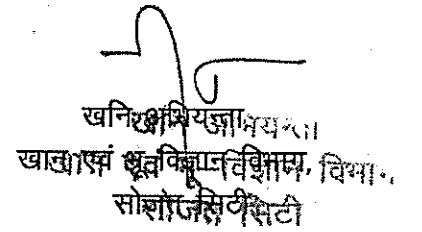 खनि अभियन्ता
खान एवं भू विज्ञान विभाग,
सोजत सिटी